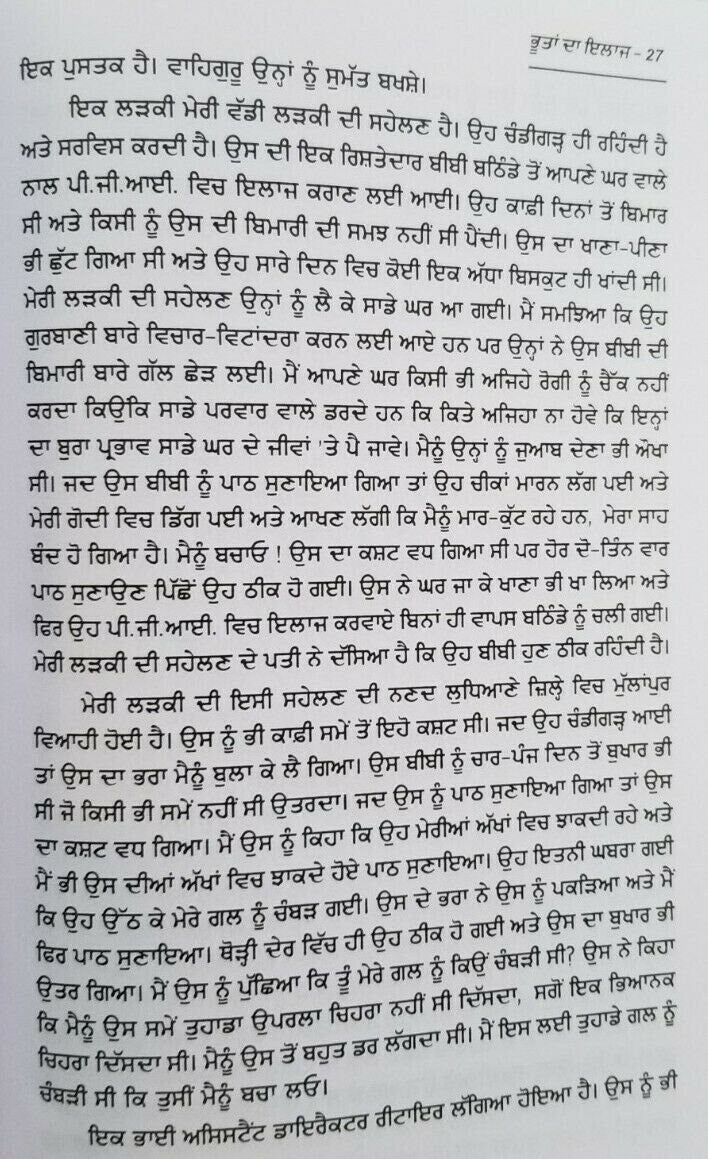 ਭੂਤਾਂ ਦਾ ਇਲਾਜ - 27
ਇਕ ਪੁਸਤਕ ਹੈ। ਵਾਹਿਗੁਰੂ ਉਨ੍ਹਾਂ ਨੂੰ ਸੁਮੱਤ ਬਖਸ਼ੇ।
ਇਕ ਲੜਕੀ ਮੇਰੀ ਵੱਡੀ ਲੜਕੀ ਦੀ ਸਹੇਲਣ ਹੈ। ਉਹ ਚੰਡੀਗੜ੍ਹ ਹੀ ਰਹਿੰਦੀ ਹੈ
ਅਤੇ ਸਰਵਿਸ ਕਰਦੀ ਹੈ। ਉਸ ਦੀ ਇਕ ਰਿਸ਼ਤੇਦਾਰ ਬੀਬੀ ਬਠਿੰਡੇ ਤੋਂ ਆਪਣੇ ਘਰ ਵਾਲੇ
ਨਾਲ ਪੀ.ਜੀ.ਆਈ. ਵਿਚ ਇਲਾਜ ਕਰਾਣ ਲਈ ਆਈ। ਉਹ ਕਾਫ਼ੀ ਦਿਨਾਂ ਤੋਂ ਬਿਮਾਰ
ਸੀ ਅਤੇ ਕਿਸੀ ਨੂੰ ਉਸ ਦੀ ਬਿਮਾਰੀ ਦੀ ਸਮਝ ਨਹੀਂ ਸੀ ਪੈਂਦੀ। ਉਸ ਦਾ ਖਾਣਾ-ਪੀਣਾ
ਭੀ ਛੁੱਟ ਗਿਆ ਸੀ ਅਤੇ ਉਹ ਸਾਰੇ ਦਿਨ ਵਿਚ ਕੋਈ ਇਕ ਅੱਧਾ ਬਿਸਕੁਟ ਹੀ ਖਾਂਦੀ ਸੀ।
ਮੇਰੀ ਲੜਕੀ ਦੀ ਸਹੇਲਣ ਉਨ੍ਹਾਂ ਨੂੰ ਲੈ ਕੇ ਸਾਡੇ ਘਰ ਆ ਗਈ। ਮੈਂ ਸਮਝਿਆ ਕਿ ਉਹ
ਗੁਰਬਾਣੀ ਬਾਰੇ ਵਿਚਾਰ-ਵਿਟਾਂਦਰਾ ਕਰਨ ਲਈ ਆਏ ਹਨ ਪਰ ਉਨ੍ਹਾਂ ਨੇ ਉਸ ਬੀਬੀ ਦੀ
ਬਿਮਾਰੀ ਬਾਰੇ ਗੱਲ ਛੇੜ ਲਈ। ਮੈਂ ਆਪਣੇ ਘਰ ਕਿਸੀ ਭੀ ਅਜਿਹੇ ਰੋਗੀ ਨੂੰ ਚੈੱਕ ਨਹੀਂ
ਕਰਦਾ ਕਿਉਂਕਿ ਸਾਡੇ ਪਰਵਾਰ ਵਾਲੇ ਡਰਦੇ ਹਨ ਕਿ ਕਿਤੇ ਅਜਿਹਾ ਨਾ ਹੋਵੇ ਕਿ ਇਨ੍ਹਾਂ
ਦਾ ਬੁਰਾ ਪ੍ਰਭਾਵ ਸਾਡੇ ਘਰ ਦੇ ਜੀਵਾਂ 'ਤੇ ਪੈ ਜਾਵੇ। ਮੈਨੂੰ ਉਨ੍ਹਾਂ ਨੂੰ ਜੁਆਬ ਦੇਣਾ ਭੀ ਔਖਾ
ਸੀ। ਜਦ ਉਸ ਬੀਬੀ ਨੂੰ ਪਾਠ ਸੁਣਾਇਆ ਗਿਆ ਤਾਂ ਉਹ ਚੀਕਾਂ ਮਾਰਨ ਲੱਗ ਪਈ ਅਤੇ
ਮੇਰੀ ਗੋਦੀ ਵਿਚ ਡਿੱਗ ਪਈ ਅਤੇ ਆਖਣ ਲੱਗੀ ਕਿ ਮੈਨੂੰ ਮਾਰ-ਕੁੱਟ ਰਹੇ ਹਨ, ਮੇਰਾ ਸਾਹ
ਬੰਦ ਹੋ ਗਿਆ ਹੈ। ਮੈਨੂੰ ਬਚਾਓ ! ਉਸ ਦਾ ਕਸ਼ਟ ਵਧ ਗਿਆ ਸੀ ਪਰ ਹੋਰ ਦੋ-ਤਿੰਨ ਵਾਰ
ਪਾਠ ਸੁਣਾਉਣ ਪਿੱਛੋਂ ਉਹ ਠੀਕ ਹੋ ਗਈ। ਉਸ ਨੇ ਘਰ ਜਾ ਕੇ ਖਾਣਾ ਭੀ ਖਾ ਲਿਆ ਅਤੇ
ਫਿਰ ਉਹ ਪੀ.ਜੀ.ਆਈ. ਵਿਚ ਇਲਾਜ ਕਰਵਾਏ ਬਿਨਾਂ ਹੀ ਵਾਪਸ ਬਠਿੰਡੇ ਨੂੰ ਚਲੀ ਗਈ।
ਮੇਰੀ ਲੜਕੀ ਦੀ ਸਹੇਲਣ ਦੇ ਪਤੀ ਨੇ ਦੱਸਿਆ ਹੈ ਕਿ ਉਹ ਬੀਬੀ ਹੁਣ ਠੀਕ ਰਹਿੰਦੀ ਹੈ।
ਮੇਰੀ ਲੜਕੀ ਦੀ ਇਸੀ ਸਹੇਲਣ ਦੀ ਨਣਦ ਲੁਧਿਆਣੇ ਜ਼ਿਲ੍ਹੇ ਵਿਚ ਮੁੱਲਾਂਪੁਰ
ਵਿਆਹੀ ਹੋਈ ਹੈ। ਉਸ ਨੂੰ ਭੀ ਕਾਫ਼ੀ ਸਮੇਂ ਤੋਂ ਇਹੋ ਕਸ਼ਟ ਸੀ। ਜਦ ਉਹ ਚੰਡੀਗੜ੍ਹ ਆਈ
ਤਾਂ ਉਸ ਦਾ ਭਰਾ ਮੈਨੂੰ ਬੁਲਾ ਕੇ ਲੈ ਗਿਆ। ਉਸ ਬੀਬੀ ਨੂੰ ਚਾਰ-ਪੰਜ ਦਿਨ ਤੋਂ ਬੁਖਾਰ ਭੀ
ਸੀ ਜੋ ਕਿਸੀ ਭੀ ਸਮੇਂ ਨਹੀਂ ਸੀ ਉਤਰਦਾ। ਜਦ ਉਸ ਨੂੰ ਪਾਠ ਸੁਣਾਇਆ ਗਿਆ ਤਾਂ ਉਸ
ਦਾ ਕਸ਼ਟ ਵਧ ਗਿਆ। ਮੈਂ ਉਸ ਨੂੰ ਕਿਹਾ ਕਿ ਉਹ ਮੇਰੀਆਂ ਅੱਖਾਂ ਵਿਚ ਝਾਕਦੀ ਰਹੇ ਅਤੇ
ਮੈਂ ਭੀ ਉਸ ਦੀਆਂ ਅੱਖਾਂ ਵਿਚ ਝਾਕਦੇ ਹੋਏ ਪਾਠ ਸੁਣਾਇਆ। ਉਹ ਇਤਨੀ ਘਬਰਾ ਗਈ
ਕਿ ਉਹ ਉੱਠ ਕੇ ਮੇਰੇ ਗਲ ਨੂੰ ਚੰਬੜ ਗਈ। ਉਸ ਦੇ ਭਰਾ ਨੇ ਉਸ ਨੂੰ ਪਕੜਿਆ ਅਤੇ ਮੈਂ
ਫਿਰ ਪਾਠ ਸੁਣਾਇਆ। ਥੋੜ੍ਹੀ ਦੇਰ ਵਿੱਚ ਹੀ ਉਹ ਠੀਕ ਹੋ ਗਈ ਅਤੇ ਉਸ ਦਾ ਬੁਖਾਰ ਭੀ
ਉਤਰ ਗਿਆ। ਮੈਂ ਉਸ ਨੂੰ ਪੁੱਛਿਆ ਕਿ ਤੂੰ ਮੇਰੇ ਗਲ ਨੂੰ ਕਿਉਂ ਚੰਬੜੀ ਸੀ? ਉਸ ਨੇ ਕਿਹਾ
ਕਿ ਮੈਨੂੰ ਉਸ ਸਮੇਂ ਤੁਹਾਡਾ ਉਪਰਲਾ ਚਿਹਰਾ ਨਹੀਂ ਸੀ ਦਿੱਸਦਾ, ਸਗੋਂ ਇਕ ਭਿਆਨਕ
ਚਿਹਰਾ ਦਿੱਸਦਾ ਸੀ। ਮੈਨੂੰ ਉਸ ਤੋਂ ਬਹੁਤ ਡਰ ਲੱਗਦਾ ਸੀ। ਮੈਂ ਇਸ ਲਈ ਤੁਹਾਡੇ ਗਲ ਨੂੰ
ਚੰਬੜੀ ਸੀ ਕਿ ਤੁਸੀਂ ਮੈਨੂੰ ਬਚਾ ਲਓ।
ਇਕ ਭਾਈ ਅਸਿਸਟੈਂਟ ਡਾਇਰੈਕਟਰ ਰੀਟਾਇਰ ਲੱਗਿਆ ਹੋਇਆ ਹੈ। ਉਸ ਨੂੰ ਭੀ